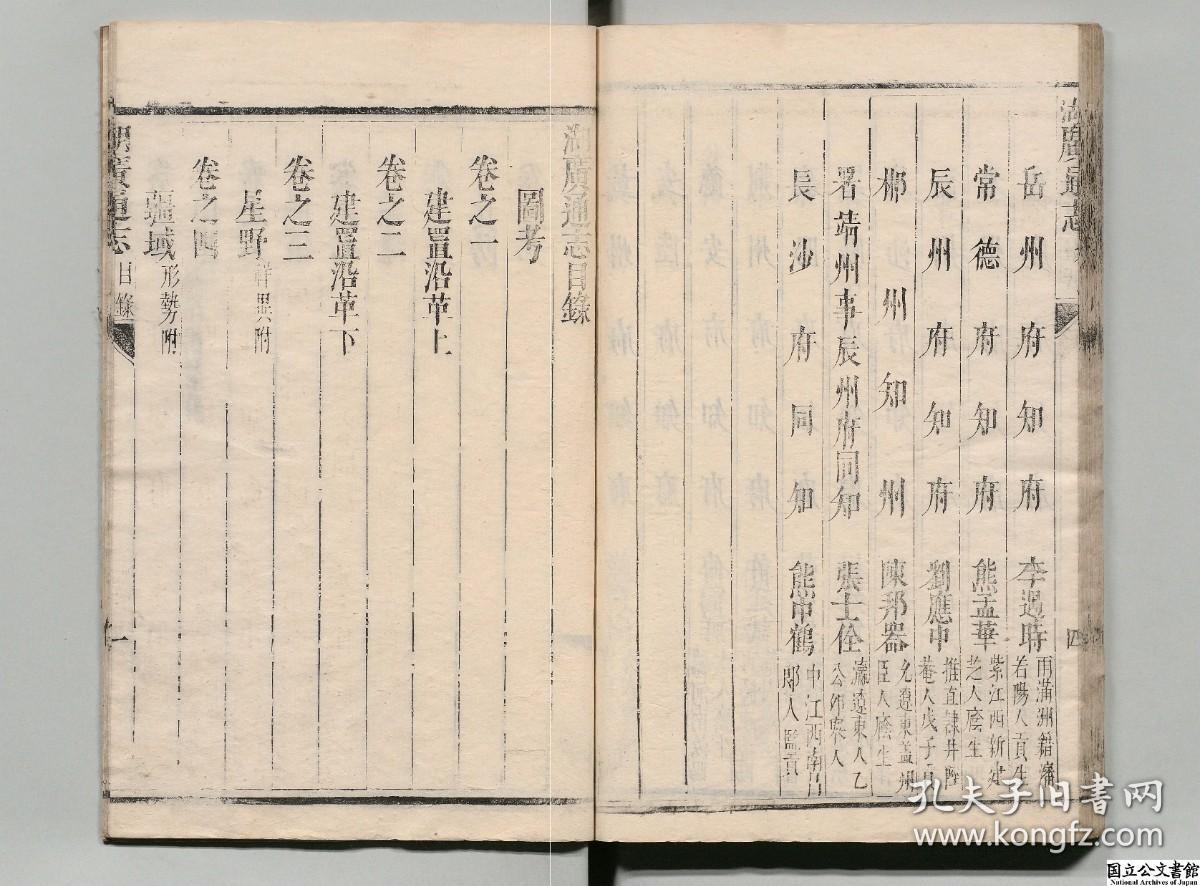 湖廣通志
四
岳州府知府 李遇時 雨滿洲籍瀋
若陽人貢生
常德府知府 熊孟華 紫江西新建
芝人廕生
辰州府知府 劉應中 直隸井陘
菴人戊子
郴州知州 陳邦器 允遼東蓋州
臣人廕生
署靖州事辰州府同知 張士佺 瀛遼東人乙
公卯 人
長沙府同知 熊 鶴 中江西南昌
郎人監貢
湖廣通志目錄
圖考
卷之一
建置沿革上
卷之二
建置沿革下
卷之三
星野 祥異附
卷之四
疆域 形勢附
湖廣通志 目錄 一
孔夫子旧书网
www.kongfz.com
国立公文書館
National Archives of Japan